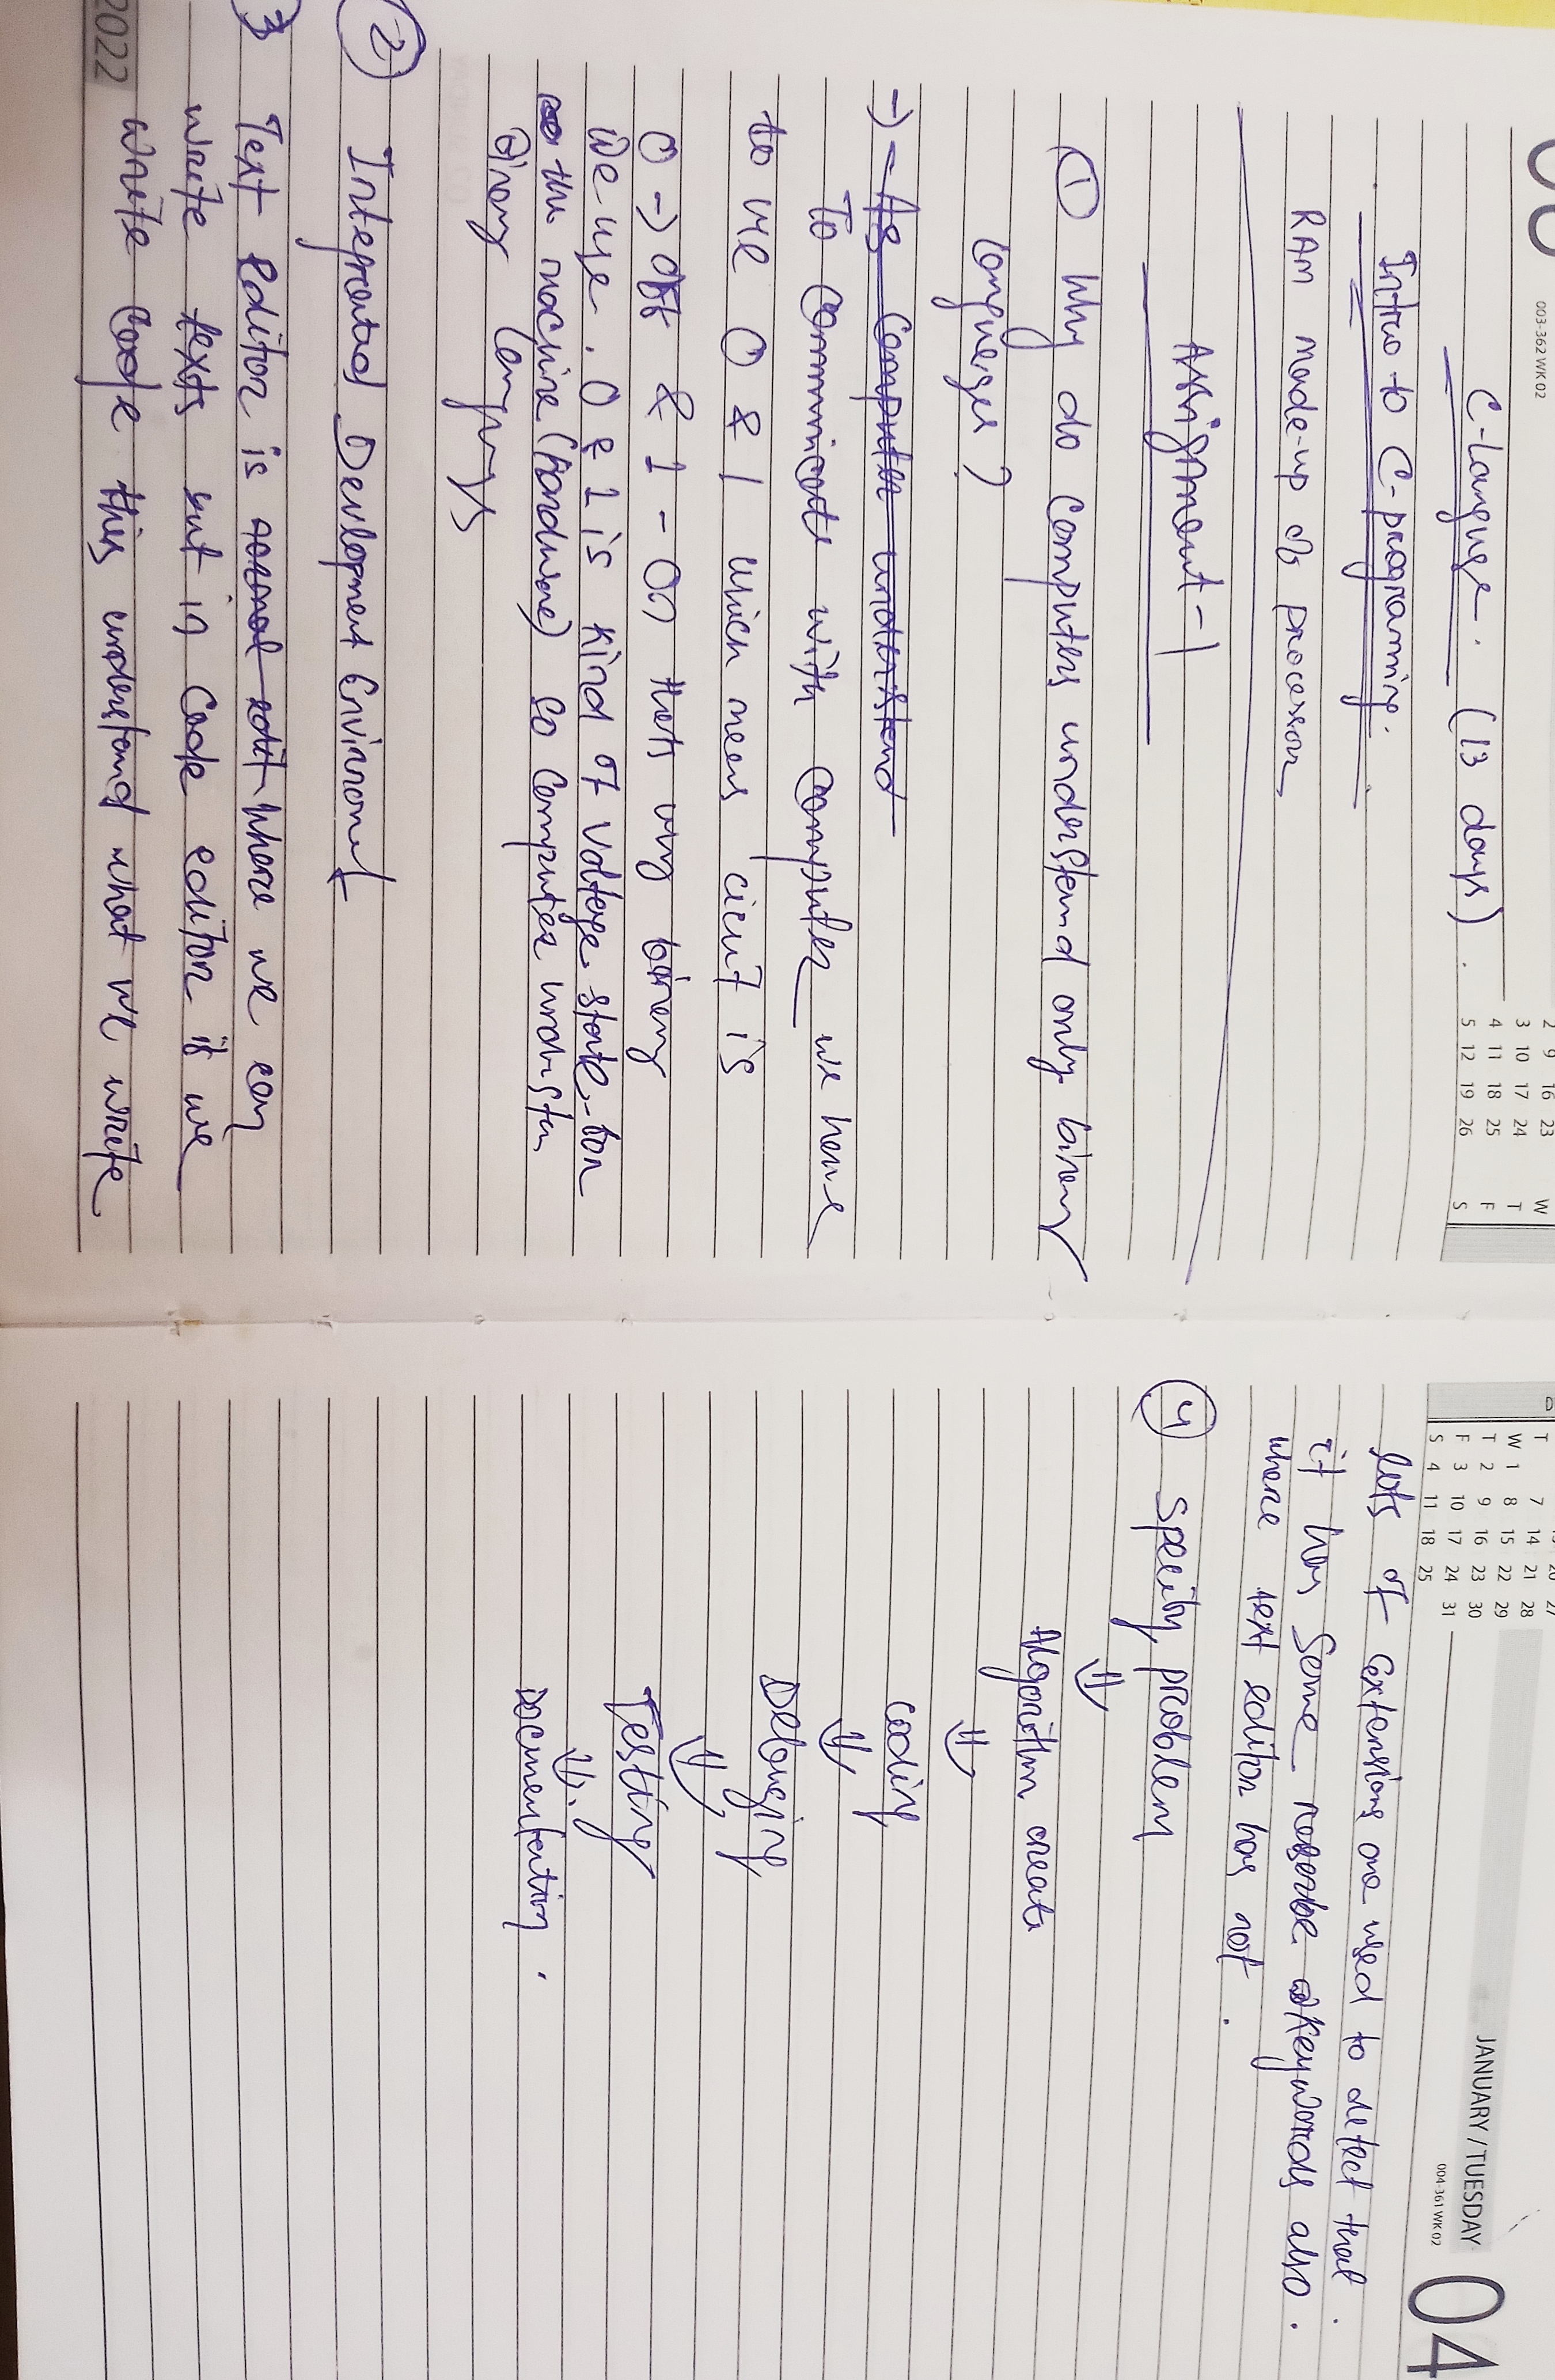 003-362 WK 02
2 9 16 23
3 10 17 24
4 11 18 25
5 12 19 26
W
T
F
S
C-Languge. (13 days).
Intro to C-programing.
RAM made-up of processor
Assignment-1
① Why do computers understand only binary
languages?
→ - As computer understand
To communicate with computer we have
to use 0 & 1 which means ciruit is
0 → off & 1 - On thats why binary
we use. 0 & 1 is kind of Voltage state for
the machine (hardware) so computer understan
Binary languags
② Integrated Development Environment
3 Text Editor is normal edit where we can
write texts but in Code editor if we
write code this understand what we write
2022
T 7 14 21 28
W 1 8 15 22 29
T 2 9 16 23 30
F 3 10 17 24 31
S 4 11 18 25
JANUARY / TUESDAY
004-361 WK 02
04
lots of Extensions are used to detect that.
it has Some reserbe Keywords also.
where text editor has not.
④ specify problem
⇓
Algorithm create
⇓
coding
⇓
Debuging
⇓
Testing
⇓.
Documentation.